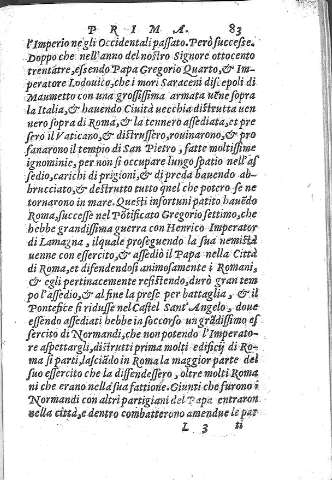 P R I M A. 83
l'Imperio negli Occidentali passato. Però successe.
Doppo che nell'anno del nostro Signore ottocento
trentatre, essendo Papa Gregorio Quarto, & Im-
peratore Lodouico, che i mori Saraceni discepoli di
Maumetto con una grossissima armata uẽne sopra
la Italia, & hauendo Ciuità uecchia distrutta uen
nero sopra di Roma, & la tennero assediata, et pre
sero il Vaticano, & distrussero, rouinarono, & pro
fanarono il tempio di San Pietro, fatte moltissime
ignominie, per non si occupare lungo spatio nell'as
sedio, carichi di prigioni, & di preda hauendo ab-
brucciato, & destrutto tutto quel che potero se ne
tornarono in mare. Questi infortuni patito hauẽdo
Roma, successe nel Põtificato Gregorio settimo, che
hebbe grandissima guerra con Henrico Imperator
di Lamagna, ilquale proseguendo la sua nemistà
uenne con essercito, & assediò il Papa nella Città
di Roma, et difendendosi animosamente i Romani,
& egli pertinacemente resistendo, durò gran tem
po l'assedio, & al fine la prese per battaglia, & il
Pontefice si ridusse nel Castel Sant'Angelo, doue
essendo assediati hebbe in soccorso un grãdissimo es
sercito di Normandi, che non potendo l'Imperato-
re aspettargli, distrutti prima molti edificij di Ro-
ma si partì, lasciãdo in Roma la maggior parte del
suo essercito che la diffendessero, oltre molti Roma
ni che erano nella sua fattione. Giunti che furono i
Normandi con altri partigiani del Papa entraron
nella città, e dentro combatterono amendue le par
L 3 ti